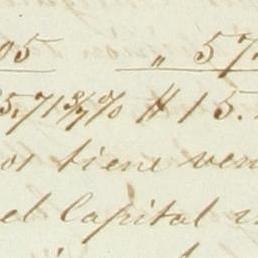 05 " 57
5,71 3/7 % # 15.
os tiene ven
el Capital